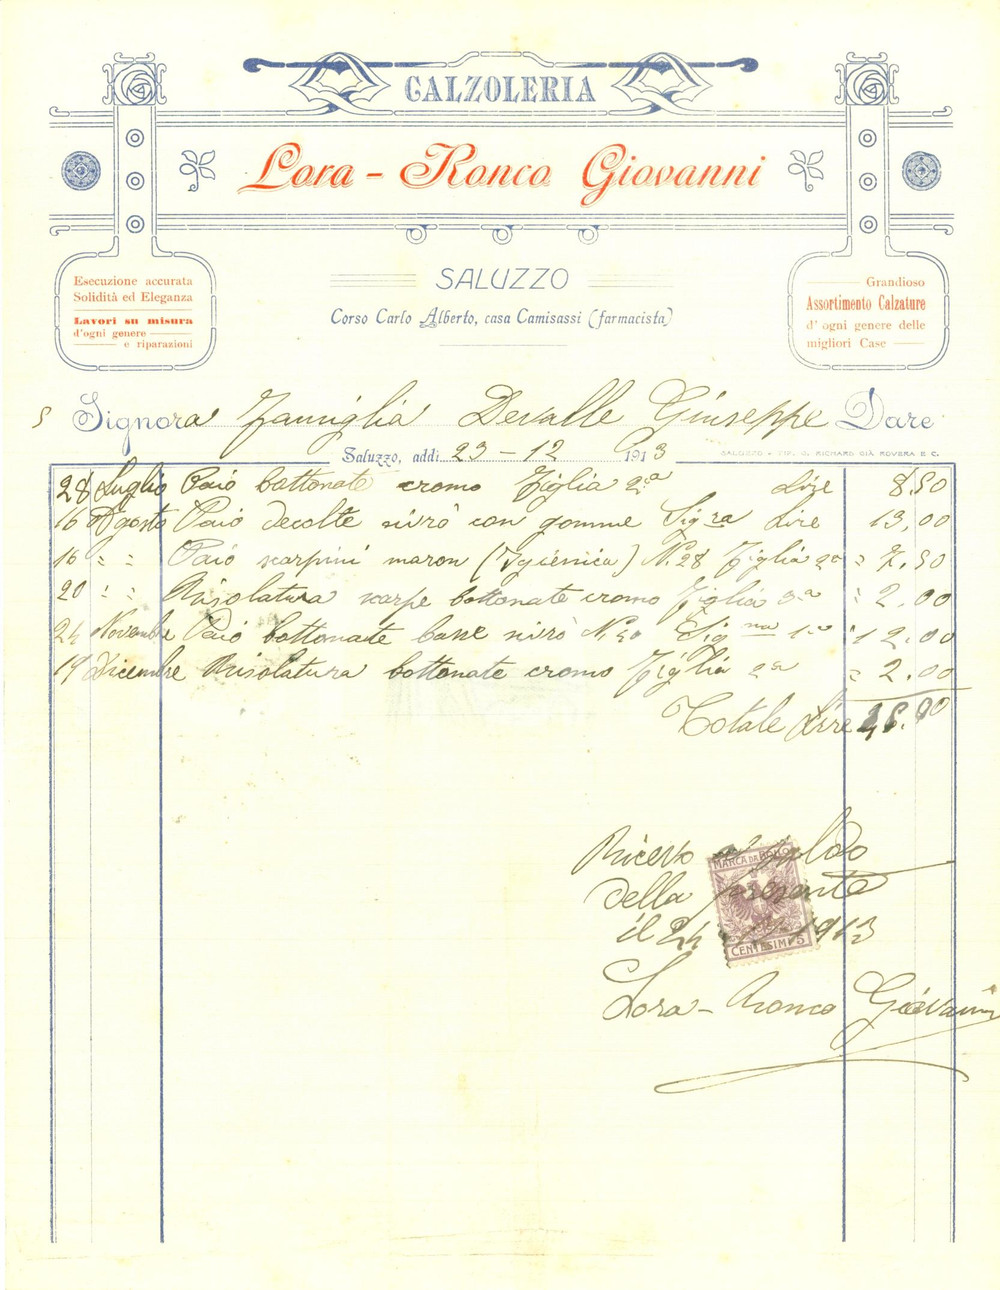 CALZOLERIA
Lora - Ronco Giovanni
Esecuzione accurata
Solidità ed Eleganza
Lavori su misura
d'ogni genere
e riparazioni
SALUZZO
Corso Carlo Alberto, casa Camisassi (farmacista)
Grandioso
Assortimento Calzature
d'ogni genere delle
migliori Case
5 Signora Famiglia Devalle Giuseppe Dare
Saluzzo, addi 23 - 12 1913
SALUZZO - TIP. G. RICHARD GIÀ ROVERA E C.
28 Luglio Paió bottonate cromo Figlia 2.a Lire 8,50
16 Agosto Paió decolte nirò con gomme Sig.ra Lire 13,00
16 " " Paió scarpini maron (Igiénica) N. 28 Figlia 2a " 7.50
20 " " Risolatura scarpe bottonate cromo Figlia 3.a " 2.00
24 Novembre Paió bottonate basse nirò N. 30 Sig.na " 12.00
19 Dicembre Risolatura bottonate cromo Figlia 2a " 2.00
Totale Lire 00
Ricevo saldo
della presente
il 24 1913
MARCA DA BOLLO
CENTESIMI 5
Lora - Ronco Giovanni